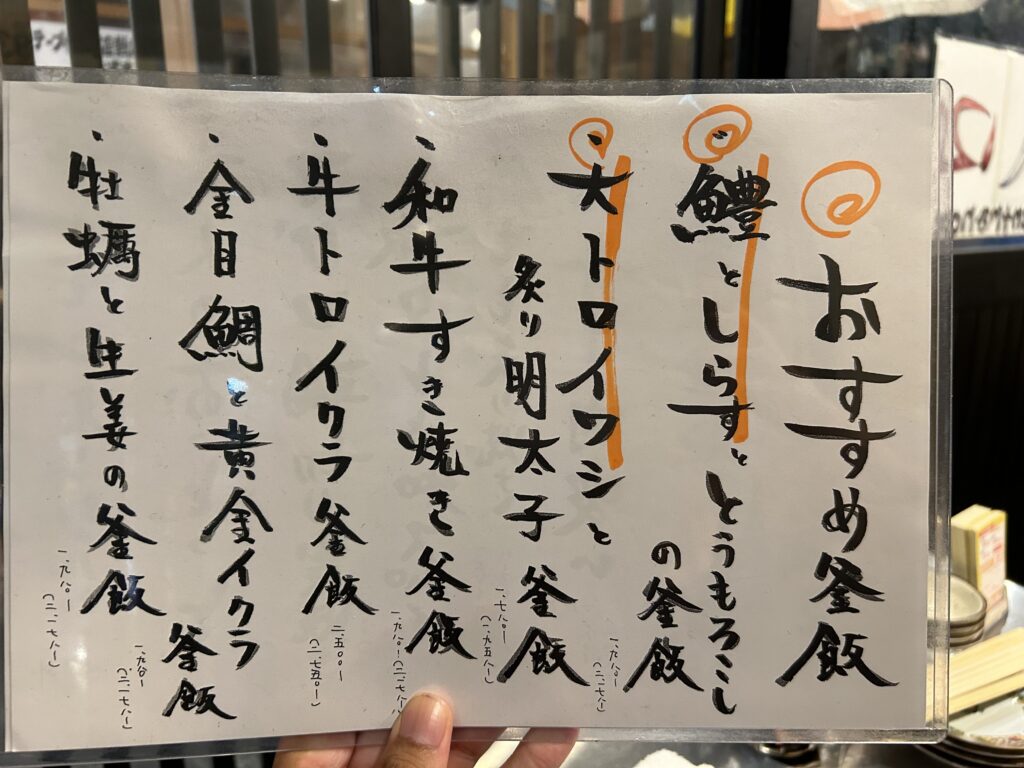 おすすめ釜飯
・鱧としらすととうもろこし
の釜飯
一、九八〇ー
(二、一七八ー)
・大トロイワシと
炙り明太子釜飯
一、七八〇ー
(一、九五八ー)
・和牛すき焼き釜飯
一、九八〇ー(二、一七八ー)
・牛トロイクラ釜飯
二、五〇〇ー
(二、七五〇ー)
・金目鯛と黄金イクラ
釜飯
一、九八〇ー
(二、一七八ー)
・牡蠣と生姜の釜飯
一、九八〇ー
(二、一七八ー)